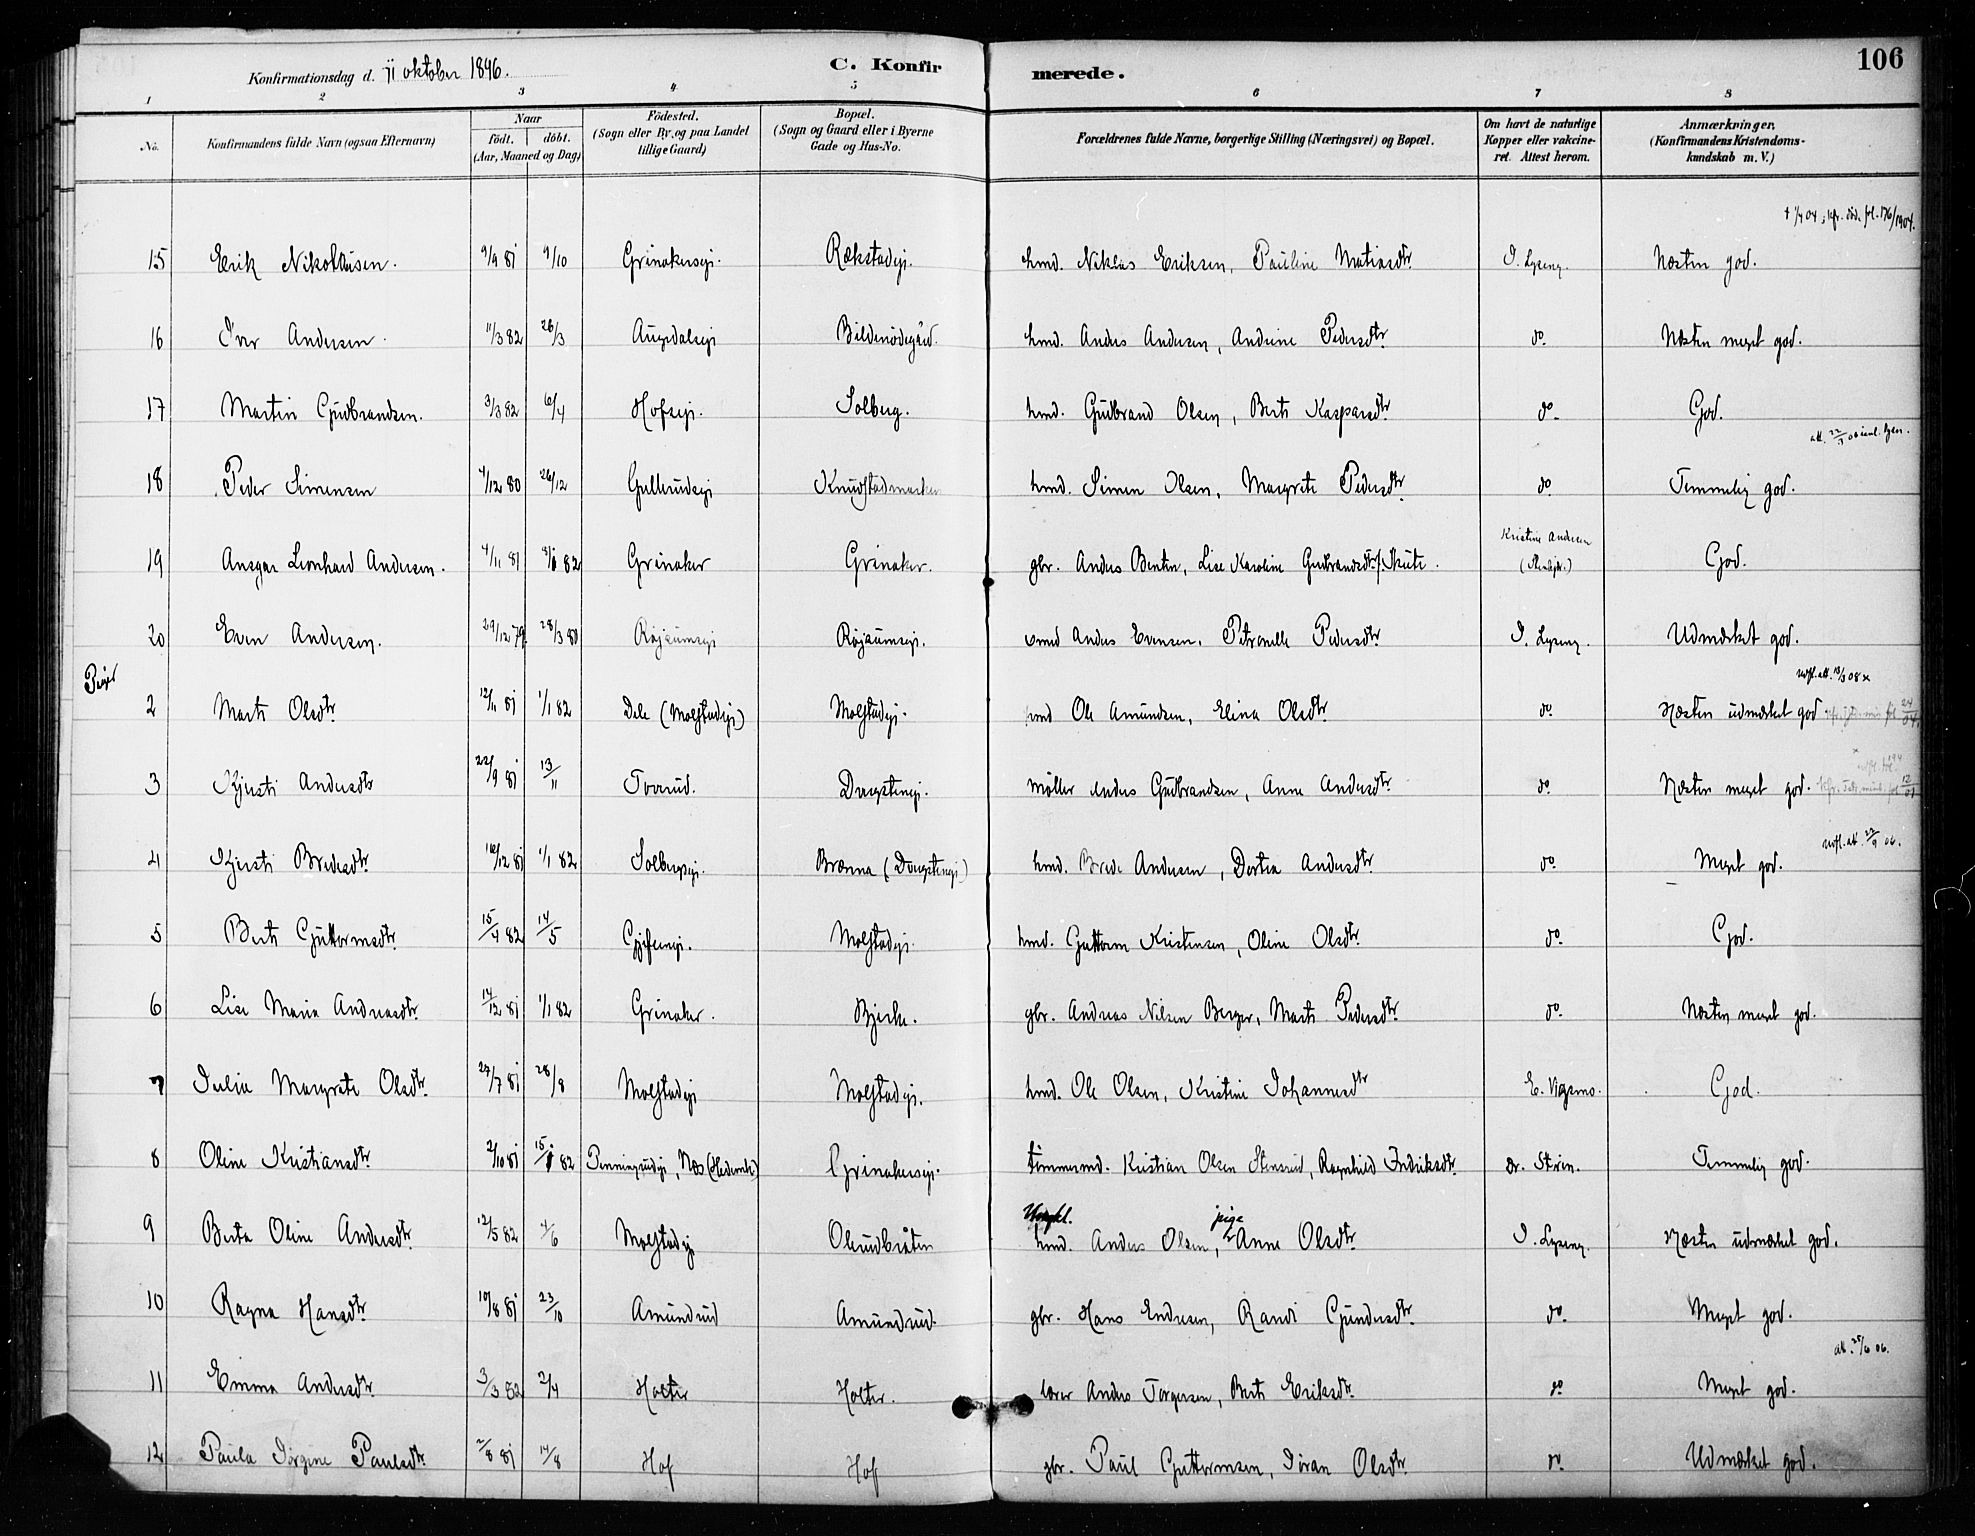 106
Konfirmationsdag d. 11 oktober 1896.
C. Konfirmerede.
1 2 3 4 5 6 7 8
No. Konfirmandens fulde Navn (ogsaa Efternavn) Naar födt. döbt. (Aar, Maaned og Dag) Födested. (Sogn eller By, og paa Landet tillige Gaard) Bopæl. (Sogn og Gaard eller i Byerne Gade og Hus-No. Forældrenes fulde Navne, borgerlige Stilling (Næringsvei) og Bopæl. Om havt de naturlige Kopper eller vakcineret. Attest herom. Anmærkninger. (Konfirmandens Kristendomskundskab m. V.)
† 1/4 04, kfr. död. fol. 176/1904.
15 Erik Nikolausen. 9/9 81 9/10 Grinakersej. Rækstadej. hmd. Niklas Eriksen, Pauline Matiasdtr. I. Lyseng. Næsten god.
16 Iver Andersen. 11/3 82 26/3 Augedalsej Bildenödegård. hmd. Anders Andersen, Andrine Pedersdtr. do. Næsten meget god.
17 Martin Gudbrandsen. 3/3 82 6/4 Hofsej. Solberg. hmd. Gudbrand Olsen, Berte Kaspersdtr. do. God.
18 Peder Simensen 4/12 80 26/12 Gullerudsej Knudstadmarken hmd. Simen Olsen, Margrete Pedersdtr. do Temmelig god.
19 Ansgar Leonhard Andersen. 4/11 81 8/1 82 Grinaker Grinaker. gbr. Anders Benten, Lise Karoline Gudbrandsdtr. f. Skute. Kristine Andersen God.
20 Even Andersen. 29/12 79 28/3 80 Røjsumsej Røjsumsej. smed Anders Evensen, Petronelle Pedersdtr I. Lyseng. Udmærket god.
Piger
udfl. att. 13/3 08 x
2 Marte Olsdtr 12/11 81 1/1 82 Dele (Molstadej) Molstadej. hmd Ole Amundsen, Elina Olsdtr do. Næsten udmærket god
3 Kjersti Andersdtr 22/9 81 13/11 Tvverud. Dvergstenej. møller Anders Gudbrandsen, Anne Andersdtr. do. Næsten meget god.
udfl. att. 22/9 06.
4 Kjersti Bredesdtr 16/12 81 1/1 82 Solbergej. Brænna (Dvergstenej) hmd. Brede Andersen, Dortea Andersdtr. do. Meget god.
5 Berte Guttormsdtr. 15/4 82 14/5 Molstadej. hmd. Guttorm Kristensen, Oline Olsdtr. do. God.
6 Lise Maria Andreasdtr. 14/12 81 1/1 82 Grinaker. Bjerke. gbr. Andreas Nilsen Berger, Marte Pedersdtr. do. Næsten meget god.
7 Julia Margrete Olsdtr. 27/7 81 28/8 Molstadej Molstadej. hmd. Ole Olsen, Kristine Johannesdtr E. Vigsmo. God.
8 Oline Kristiansdtr. 2/10 81 15/1 82 Penningrudej, Næs (Hedemk.) Grinakersej. tømmermd. Kristian Olsen Stensrud, Ragnhild Indriksdtr. dr. Strøm. Temmelig god.
Ungkl. pige
9 Berta Oline Andersdtr. 12/5 82 4/6 Molstadej Olerudbråten hmd. Anders Olsen, Anne Olsdtr. I. Lyseng. Næsten udmærket god.
10 Ragna Hansdtr. 10/8 81 23/10 Amundrud Amundrud. gbr. Hans Endresen, Randi Gundersdtr. do. Meget god.
att. 25/6 06.
11 Emma Andersdtr. 3/3 82 2/4 Holter Holter. lærer Anders Torgersen, Berte Eriksdtr. do Meget god.
12 Paula Jørgine Paulsdtr. 2/8 81 14/8 Hof Hof gbr. Paul Guttormsen, Jøran Olsdtr. do. Udmærket god.